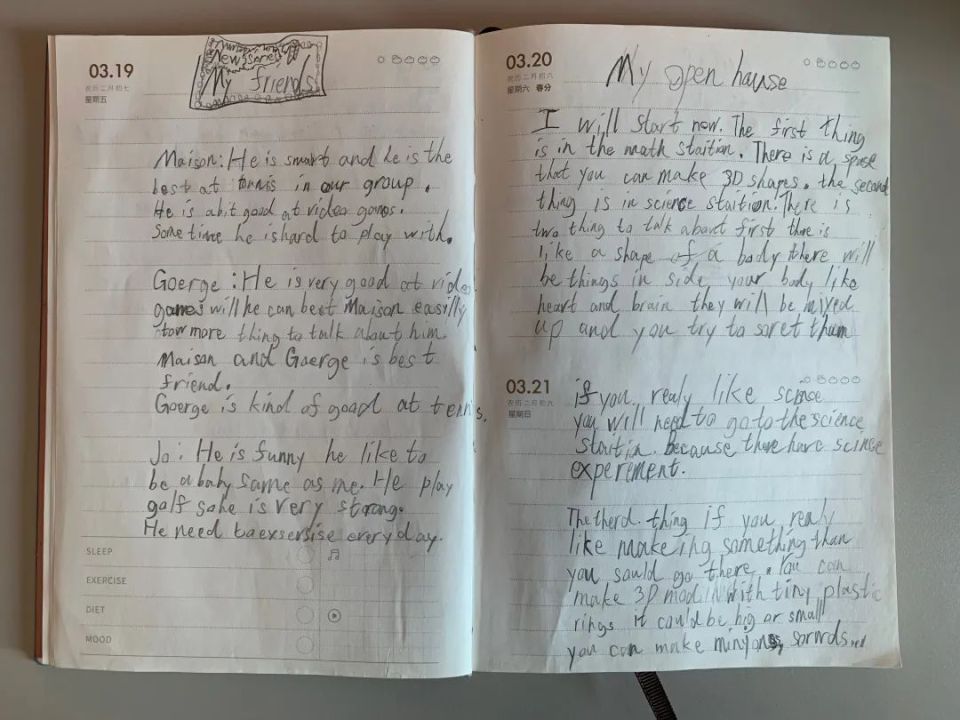 03.19
农历二月初七
星期五
News
My friends
Maison: He is smart and he is the
best at tennis in our group.
He is a bit good at video games.
Sometime he is hard to play with.
Goerge : He is very good at video
games will he can best Maison easilly
tow more thing to talk about him
Maison and Goerge is best
friend.
Goerge is kind of good at tennis.
Jo: He is funny he like to
be a baby same as me. He play
golf so he is very strong.
He need to exsersise every day.
SLEEP
EXERCISE
DIET
MOOD
03.20
农历二月初八
星期六 春分
My open house
I will start now. The first thing
is in the math staition. There is a spase
that you can make 3D shapes. the second
thing is in science staition. There is
two thing to talk about first there is
like a shape of a body there will
be things in side your body like
heart and brain they will be mixed
up and you try to soret tham
03.21
农历二月初九
星期日
if you realy like scinse
you will need to go to the science
staition. because there have scinse
experement.
The therd. thing if you realy
like makeing something than
you sould go there. You can
make 3D with tiny plastic
rings it could be big or small
you can make minyons, sorwrds